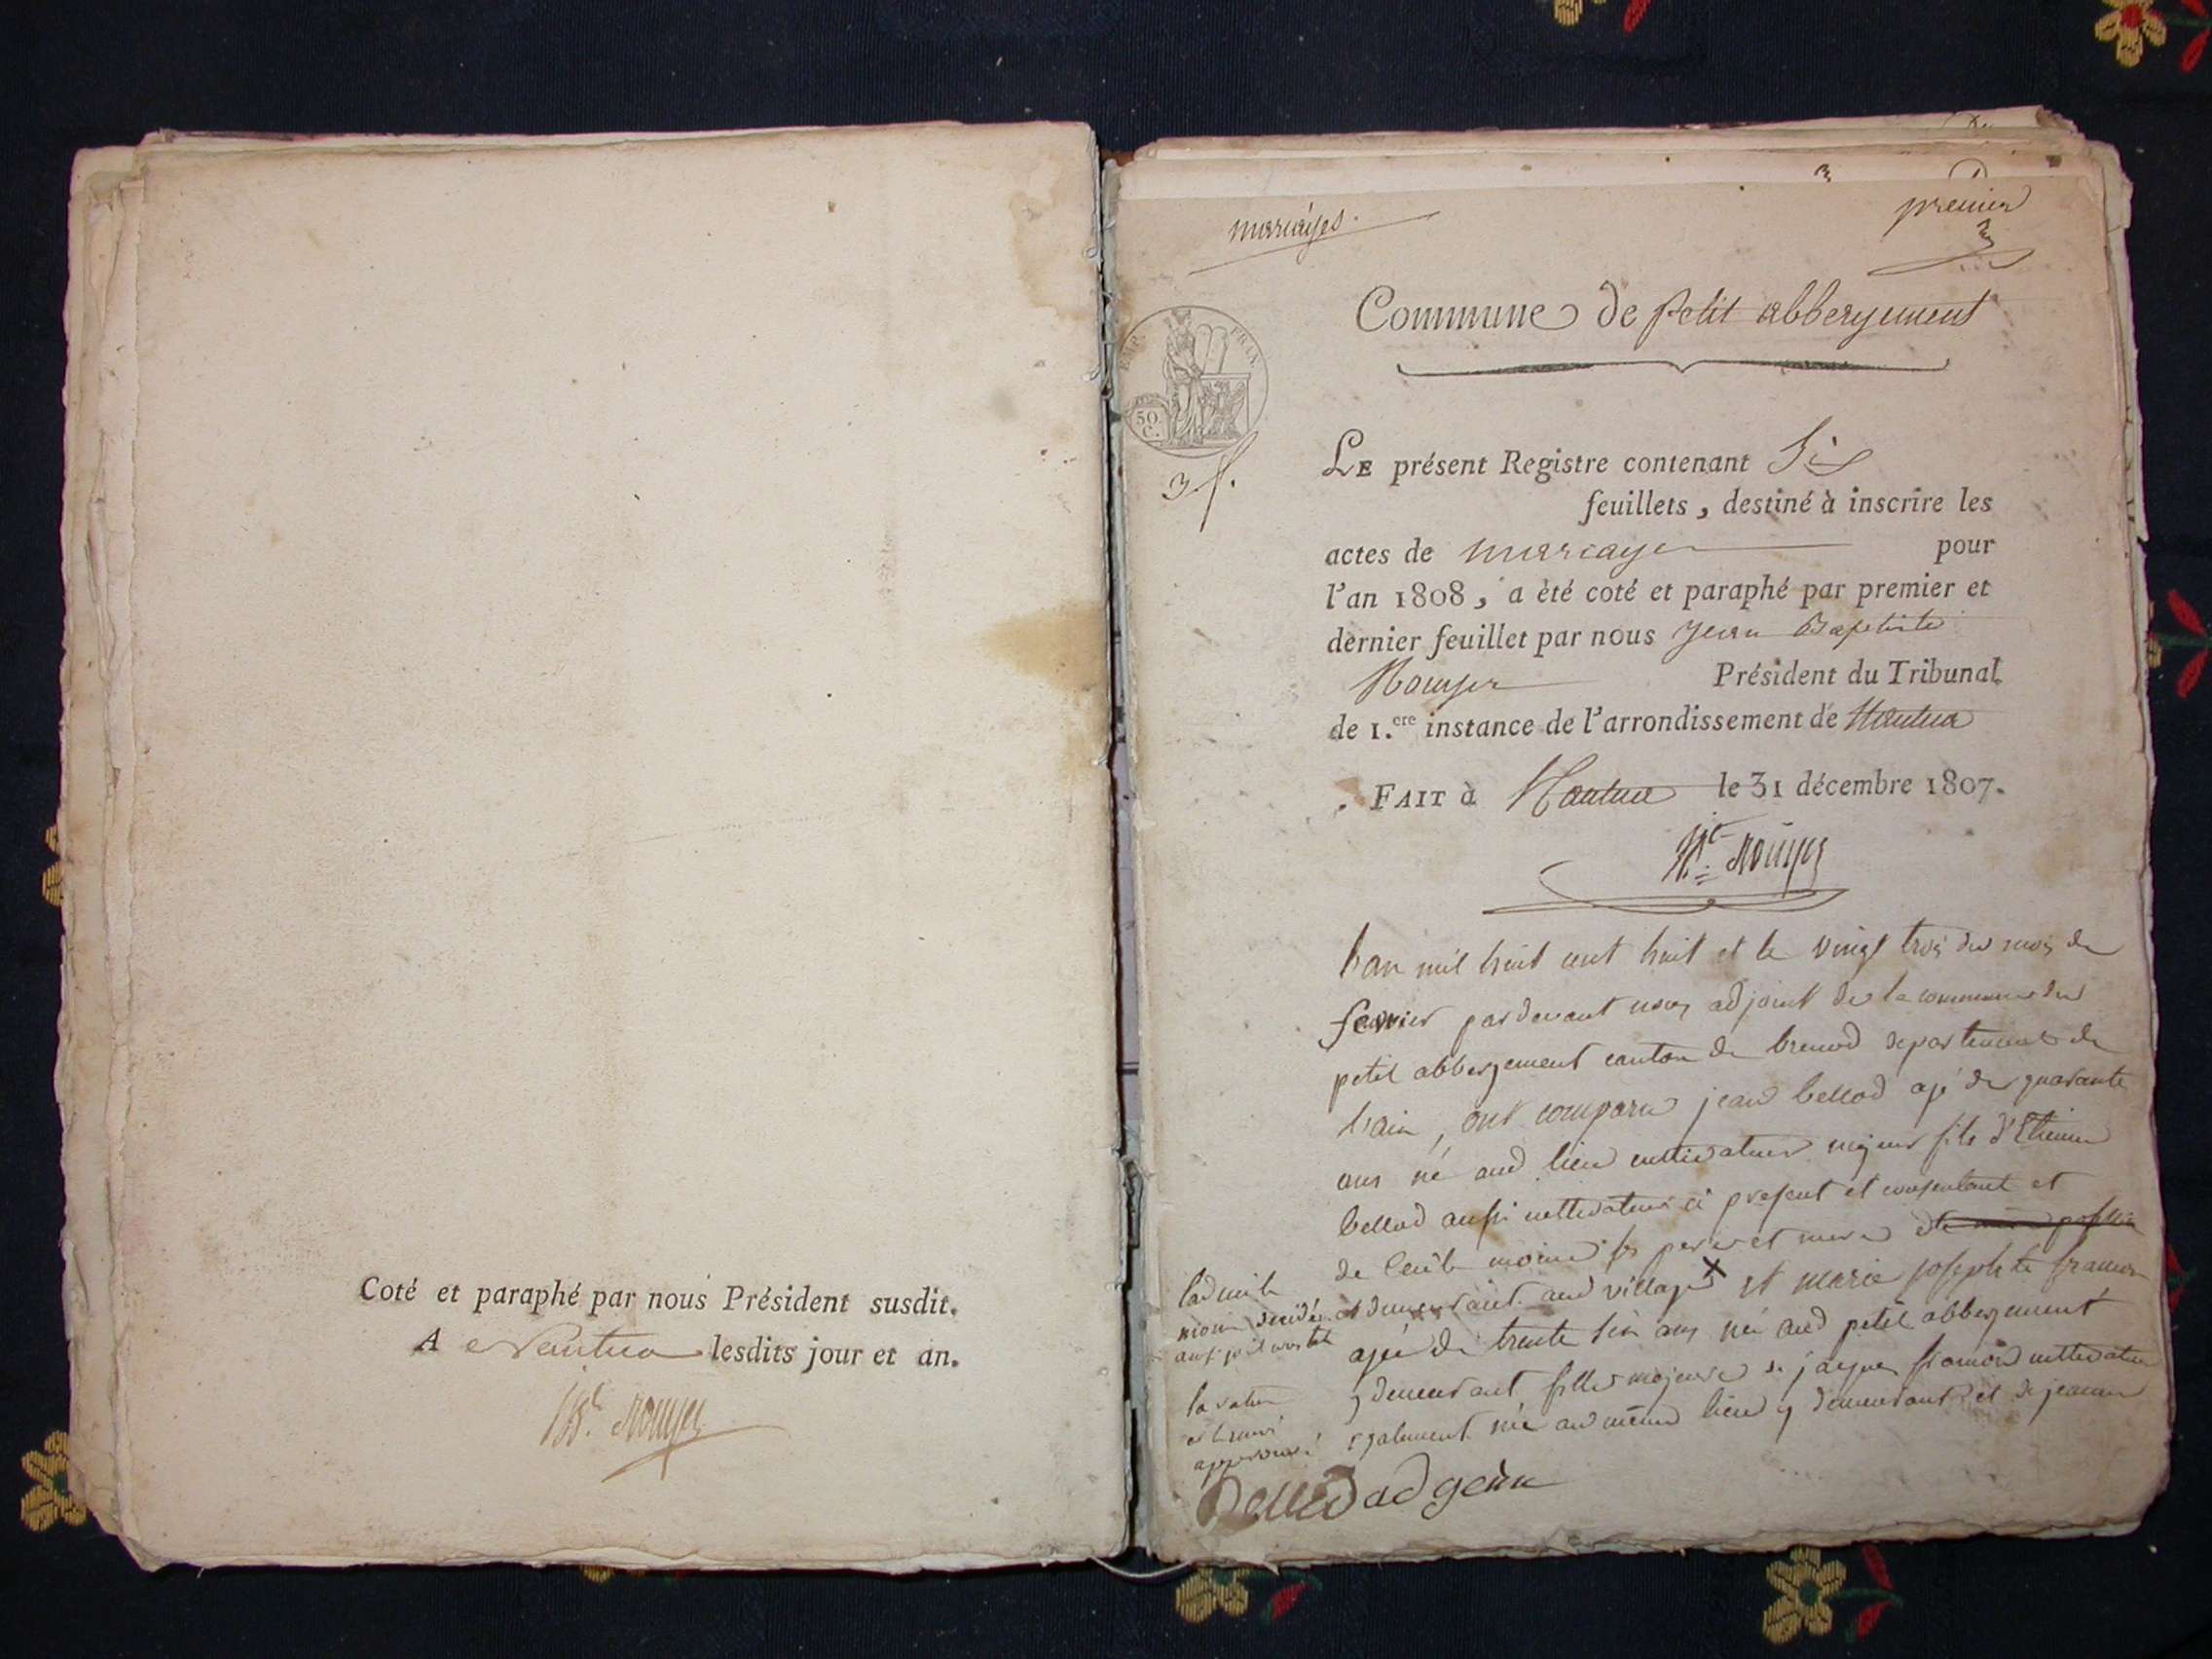 Coté et paraphé par nous Président susdit.
A Nantua lesdits jour et an.
mariages.
premier
Commune de petit abbergement
EMP. FRAN.
50
C.
LE présent Registre contenant Six
feuillets, destiné à inscrire les
actes de mariage pour
l'an 1808, a été coté et paraphé par premier et
dernier feuillet par nous Jean Baptiste
Rouyer Président du Tribunal
de 1.ere instance de l'arrondissement de Nantua
FAIT à Nantua le 31 décembre 1807.
Rouyer
L'an mil huit cent huit et le vingt trois du mois de
fevrier pardevant nous adjoint de la commune du
petit abbergement canton de brenod departement de
l'ain, ont comparu jean bellod agé de quarante
ans né aud lieu cultivateur majeur fils d'Etienne
bellod aussi cultivateur ci present et consentant et
de moine ses pere et mere
demeurant aud village et marie josephte
agée de trente six ans née aud petit abbergement
y demeurant fille majeure de jacques cultivateur
egalement née au même lieu y demeurant et de jeanne
la rature
approuvé